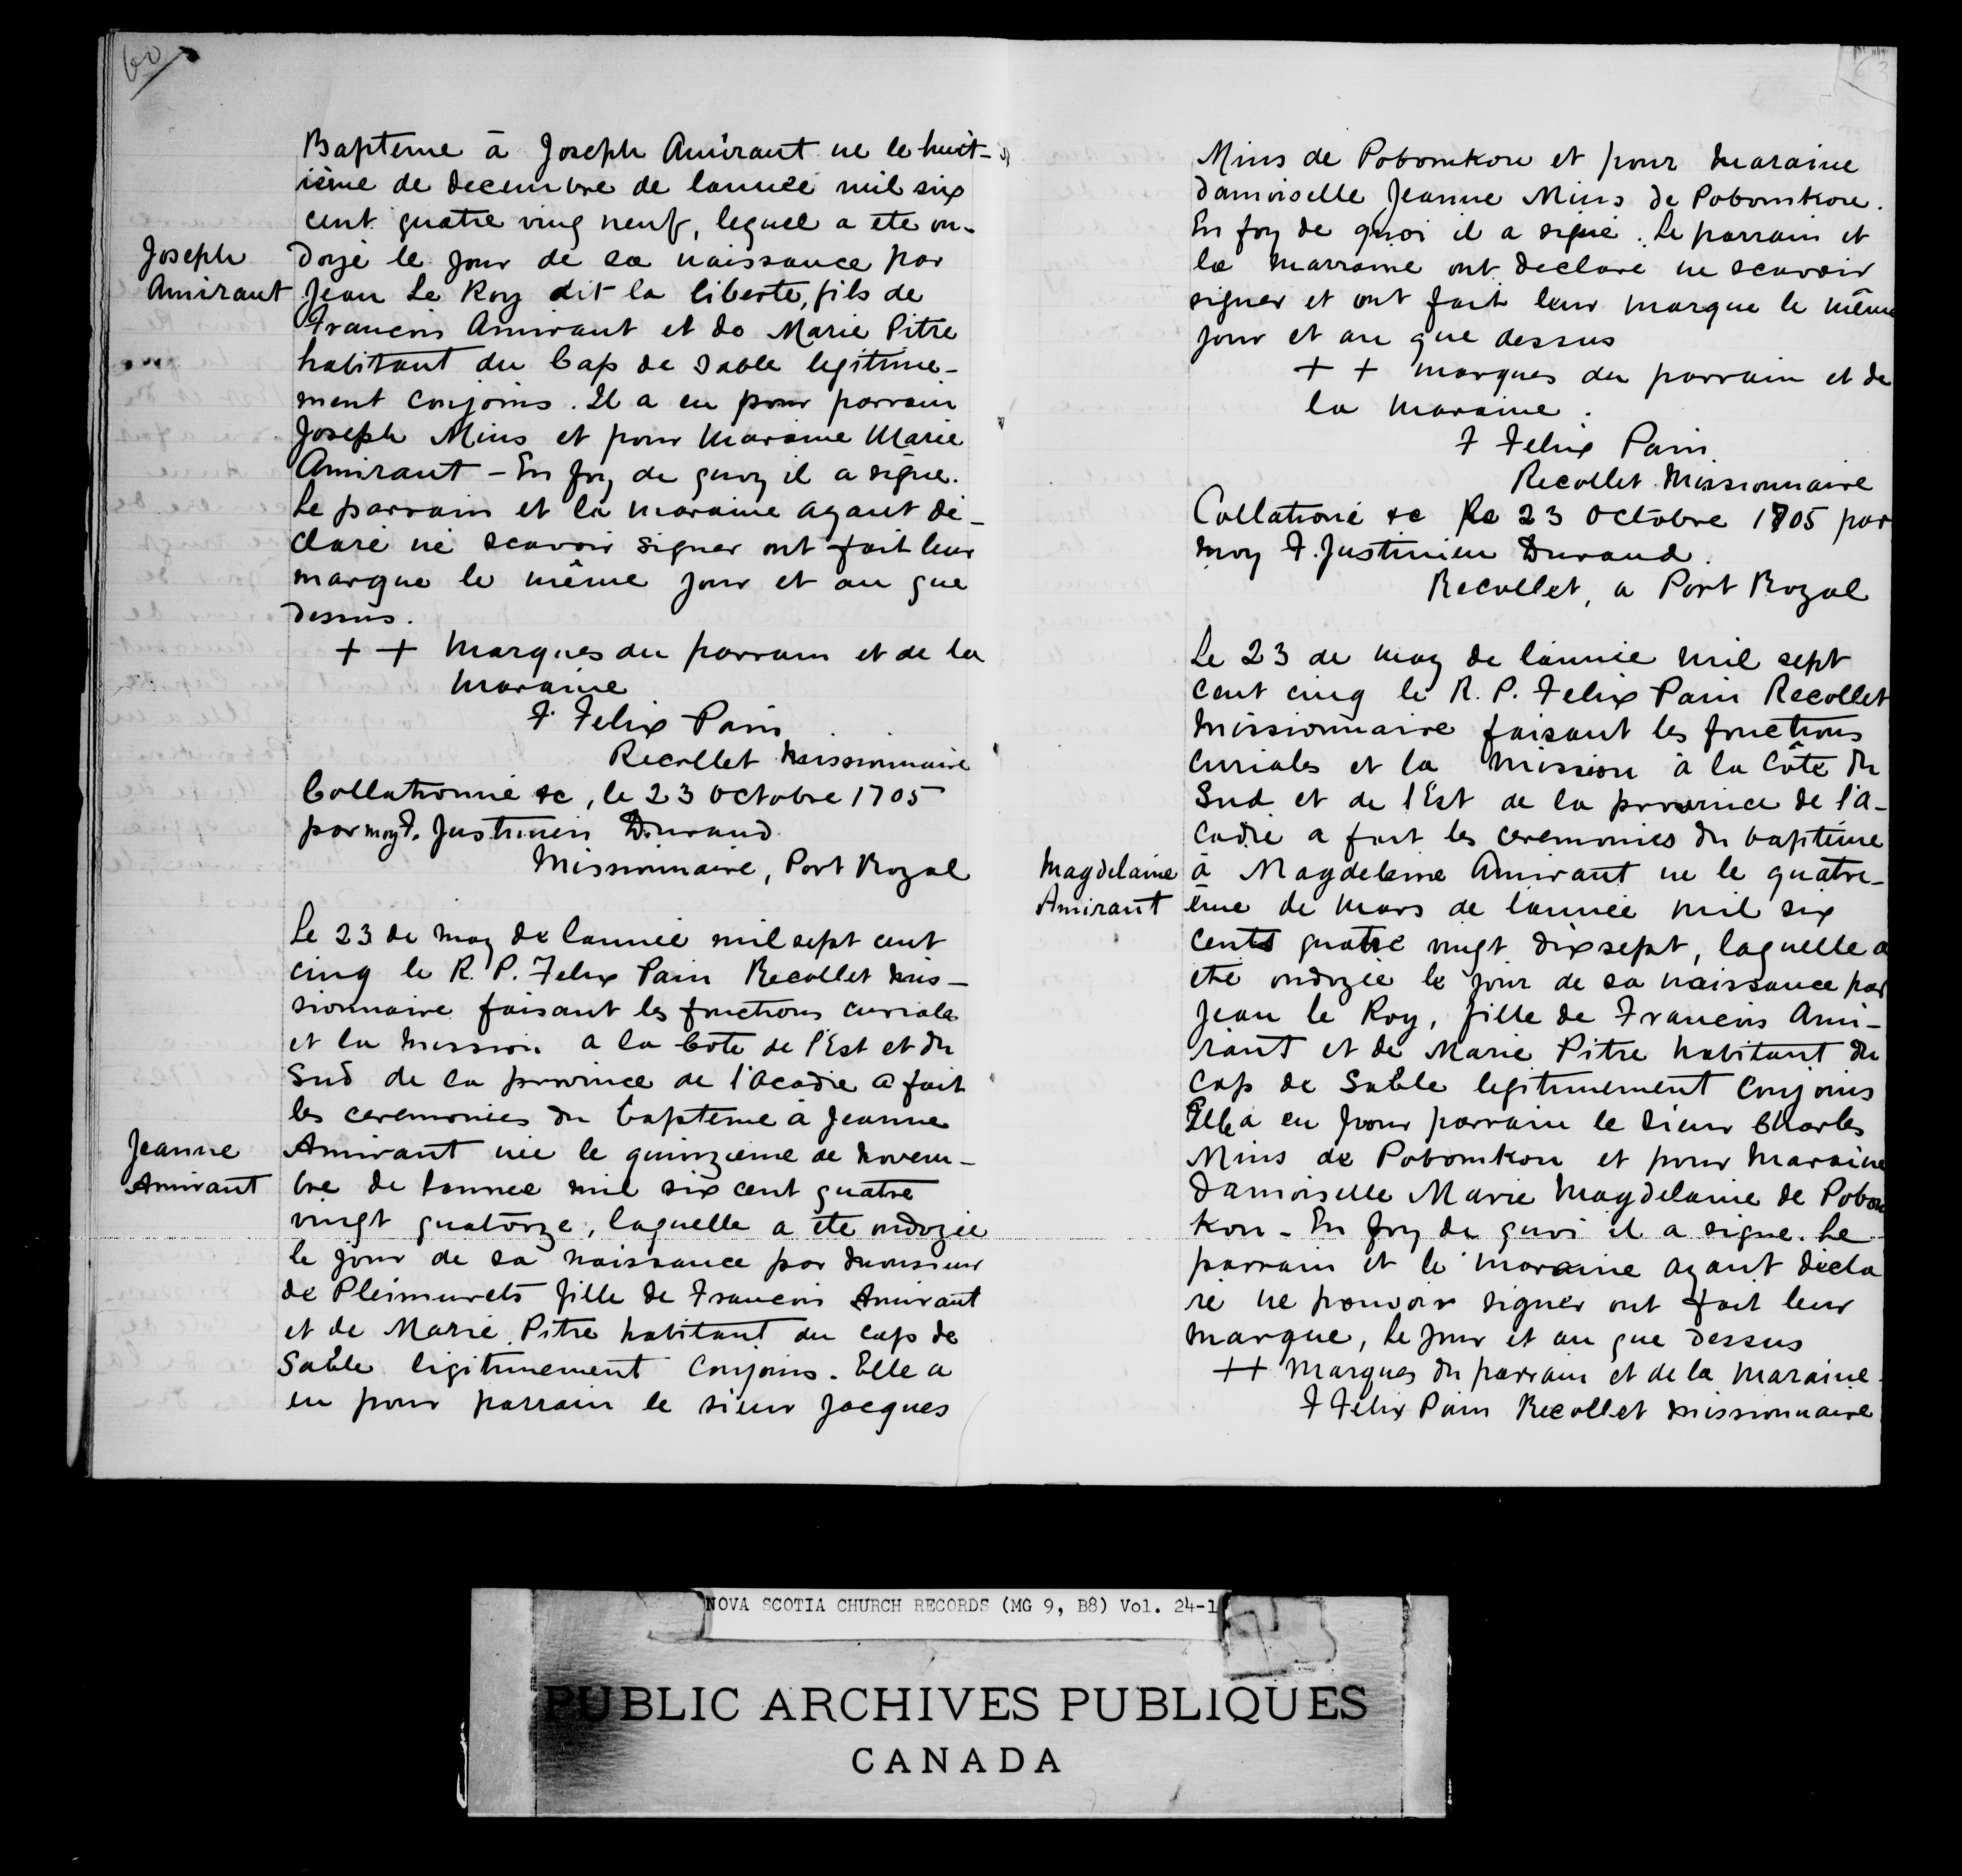 60
Bapteme à Joseph Amirant ne le huit-
ième de decembre de lannée mil six
cent quatre ving neuf, lequel a ete on-
Joseph
Amirant
doyé le jour de sa naissance par
Jean Le Roy dit la liberte, fils de
Francois Amirant et de Marie Pitre
habitant du Cap de Sable legitime-
ment conjoins. Il a eu pour parrain
Joseph Mius et pour maraine Marie
Amirant - En foy de quoy il a signe.
Le parrain et la maraine ayant dé-
claré ne scavoir signer ont fait leur
marque le même jour et an que
dessus.
+ + Marques du parrain et de la
maraine
F. Felix Pain
Recollet Missionnaire
Collationné &c, le 23 Octobre 1705
par moy F. Justinien Durand
Missionnaire, Port Royal
Le 23 de may de lannée mil sept cent
cinq le R. P. Felix Pain Recollet mis-
sionnaire faisant les fonctions curiales
et la mission a la Cote de l'Est et du
Sud de la province de l'Acadie a fait
les ceremonies du bapteme à Jeanne
Jeanne
Amirant
Amirant née le quinzieme de novem-
bre de lannee mil six cent quatre
vingt quatorze, laquelle a ete ondoyée
le jour de sa naissance par monsieur
de Pleimurets fille de Francois Amirant
et de Marie Pitre habitant du cap de
Sable legitimement conjoins. Elle a
eu pour parrain le sieur Jacques
63
Mius de Pobomkou et pour maraine
damoiselle Jeanne Mius de Pobomkou.
En foy de quoi il a signé. Le parrain et
la marraine ont declare ne scavoir
signer et ont fait leur marque le même
jour et an que dessus
+ + marques du parrain et de
la maraine.
F Felix Pain
Recollet Missionnaire
Collationé &c le 23 Octobre 1705 par
moy F. Justinien Durand.
Recollet, a Port Royal
Le 23 de may de lannée mil sept
cent cinq le R. P. Felix Pain Recollet
missionnaire faisant les fonctions
curiales et la mission à la Côte du
Sud et de l'Est de la province de l'A-
cadie a fait les ceremonies du baptême
Magdelaine
Amirant
à Magdeleine Amirant ne le quatri-
ème de mars de lannée mil six
cents quatre vingt dix sept, laquelle a
ete ondoyée le jour de sa naissance par
Jean le Roy, fille de Francois Ami-
rant et de Marie Pitre habitant du
cap de Sable legitimement conjoins
Elle a eu pour parrain le sieur Charles
Mius de Pobomkou et pour maraine
Damoiselle Marie Magdelaine de Pobom
kou - En foy de quoi il a signe. Le
parrain et la maraine ayant décla
ré ne pouvoir signer ont fait leur
marque, le jour et an que dessus
++ Marques du parrain et de la maraine.
F Felix Pain Recollet missionnaire
NOVA SCOTIA CHURCH RECORDS (MG 9, B8) Vol. 24-1
PUBLIC ARCHIVES PUBLIQUES
CANADA